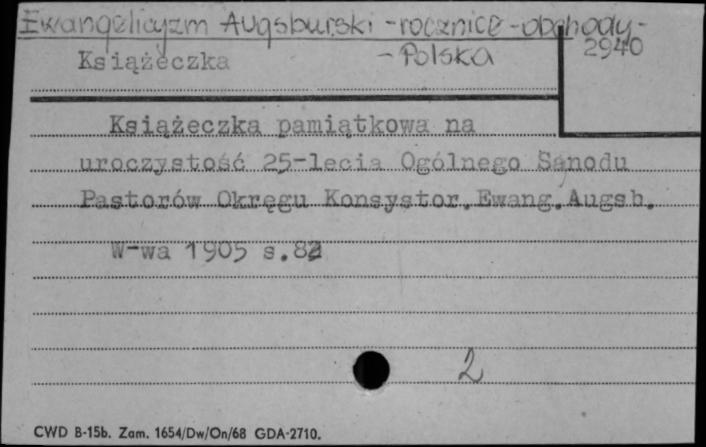 Ewangelicyzm Augsburski - rocznice - obchody -
- Polska
2940
Książeczka
Książeczka pamiątkowa na
uroczystość 25-lecia Ogólnego Synodu
Pastorów Okręgu Konsystor. Ewang. Augsb.
W-wa 1905 s.82
2
CWD B-15b. Zam. 1654/Dw/On/68 GDA-2710.